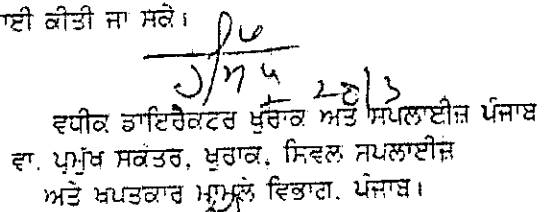 ਾਈ ਕੀਤੀ ਜਾ ਸਕੇ।
ਵਧੀਕ ਡਾਇਰੈਕਟਰ ਖੁਰਾਕ ਅਤੇ ਸਪਲਾਈਜ਼ ਪੰਜਾਬ
ਵਾ. ਪ੍ਰਮੁੱਖ ਸਕੱਤਰ, ਖੁਰਾਕ, ਸਿਵਲ ਸਪਲਾਈਜ਼
ਅਤੇ ਖਪਤਕਾਰ ਮਾਮਲੇ ਵਿਭਾਗ. ਪੰਜਾਬ।